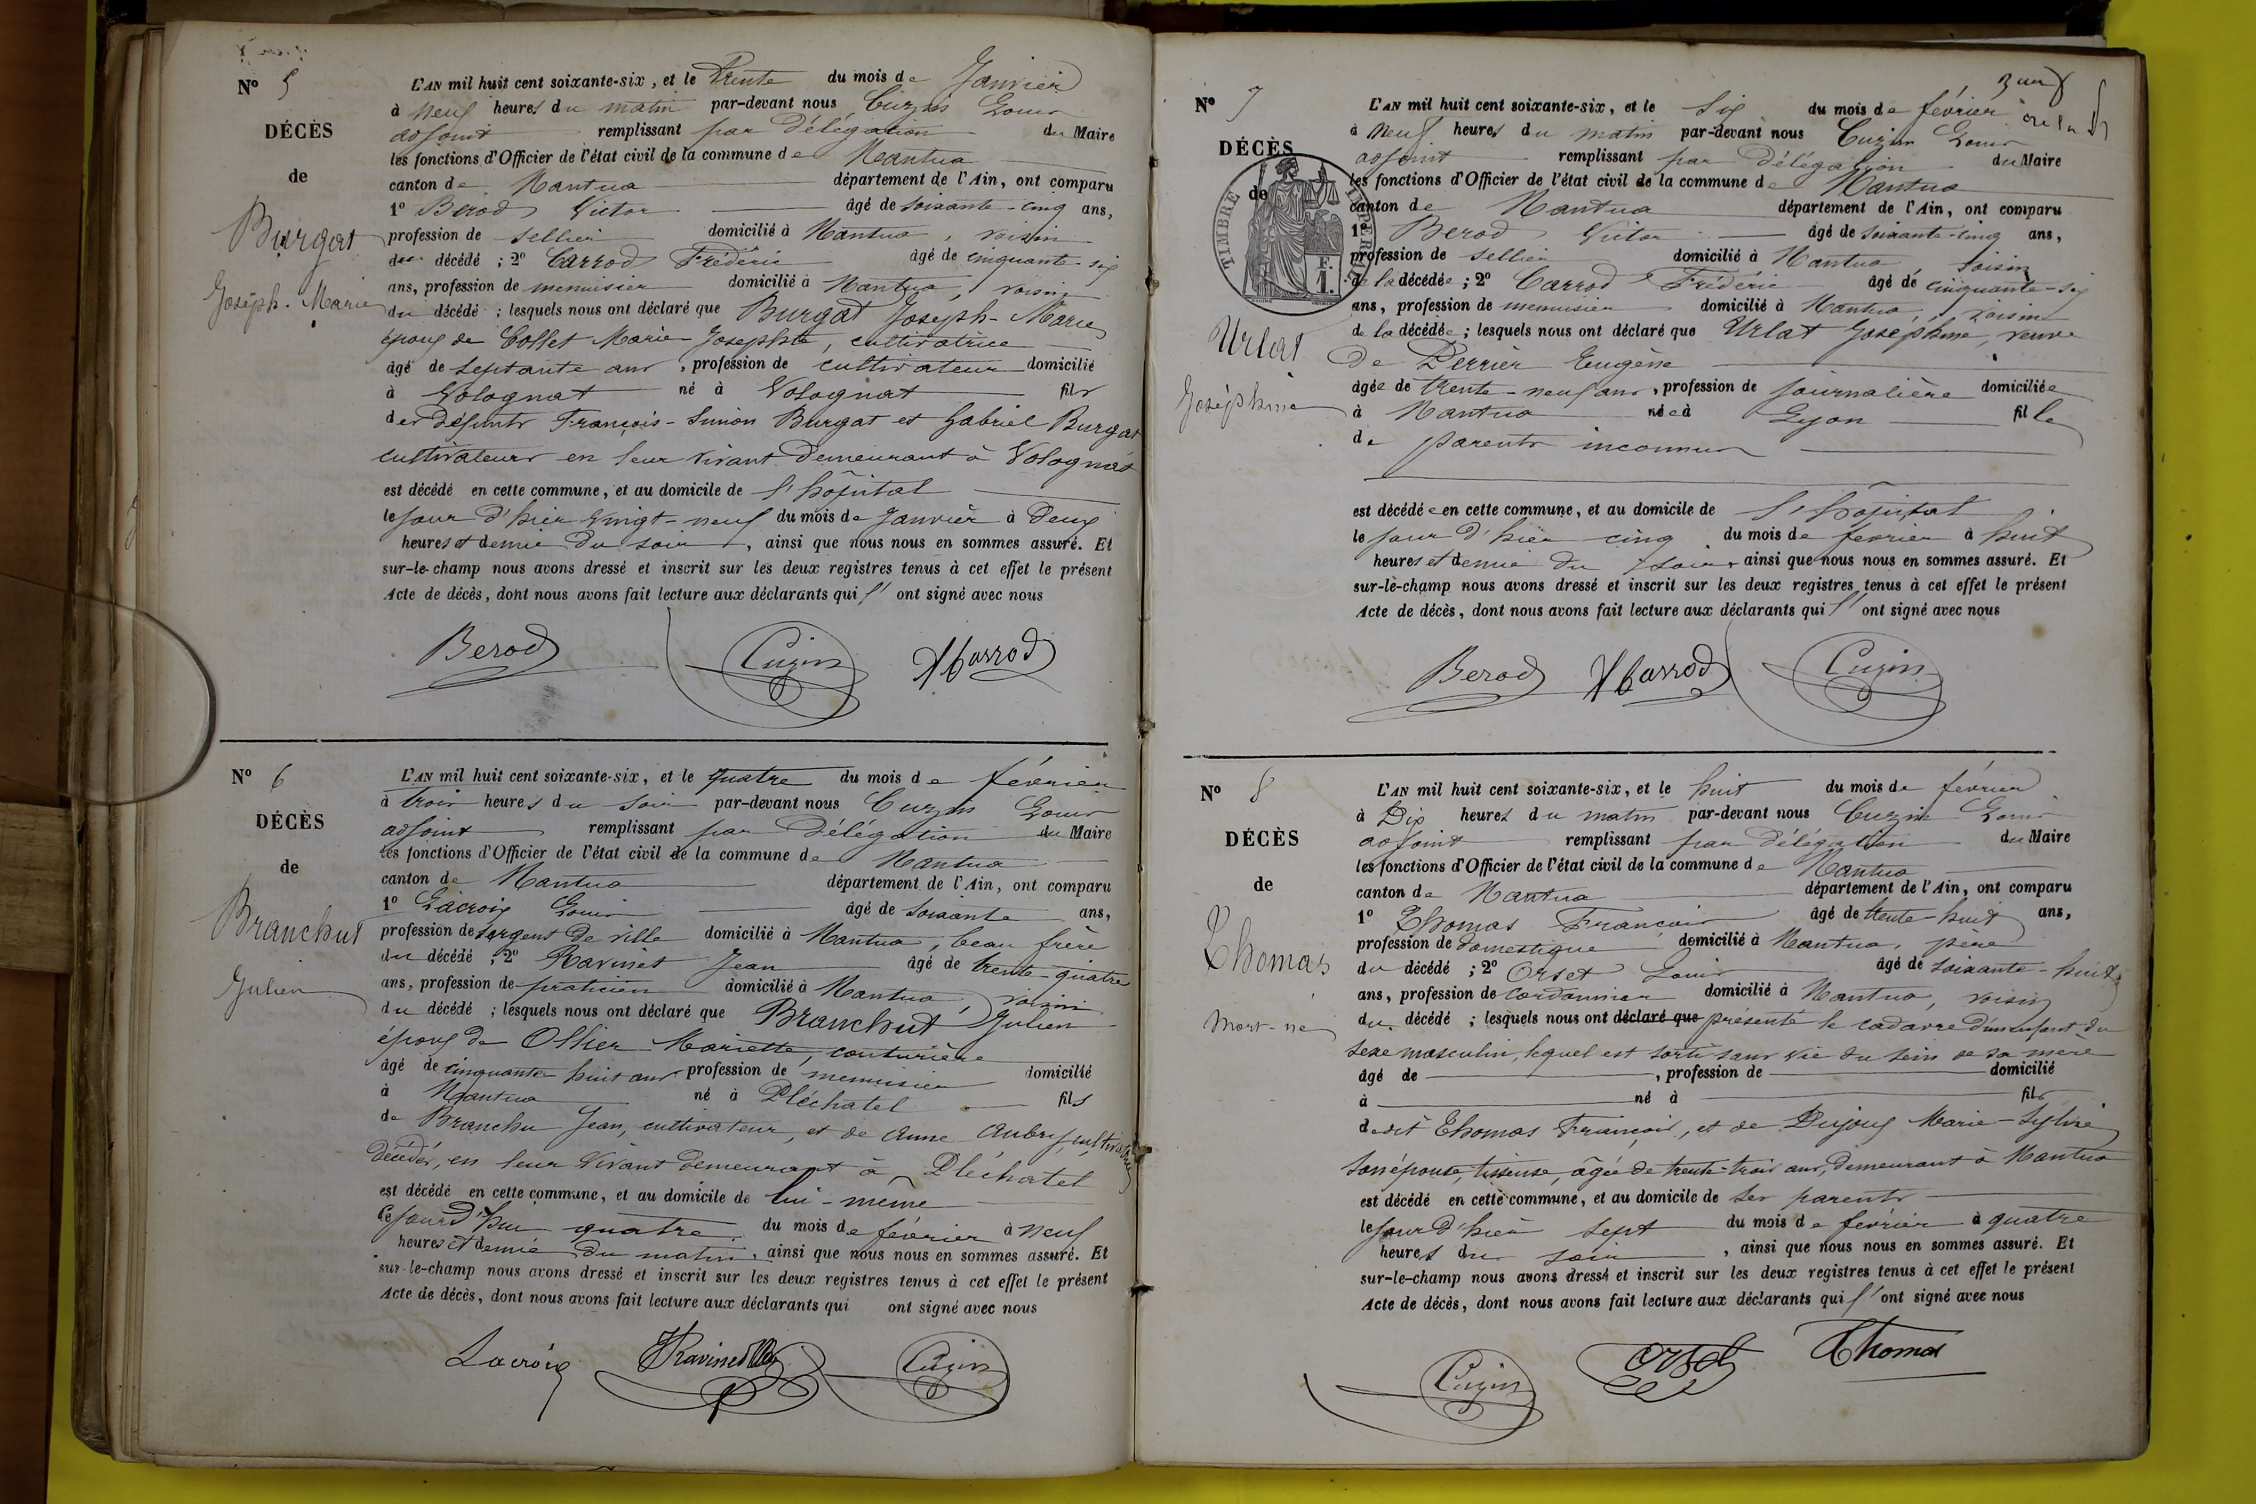 No 5
DÉCÈS
de
Burgat
Joseph-Marie
L'AN mil huit cent soixante-six, et le trente du mois de Janvier
à neuf heures du matin par-devant nous Cuzin Louis
adjoint remplissant par délégation du Maire
les fonctions d'Officier de l'état civil de la commune de Nantua
canton de Nantua département de l'Ain, ont comparu
1o Berod Victor âgé de soixante-cinq ans,
profession de sellier domicilié à Nantua, voisin
du décédé ; 2o Carrod Frédéric âgé de cinquante-six
ans, profession de menuisier domicilié à Nantua, voisin
du décédé ; lesquels nous ont déclaré que Burgat Joseph-Marie
époux de Collet Marie-Josephte, cultivatrice
âgé de septante ans, profession de cultivateur domicilié
à Volognat né à Volognat fils
des défunts François-Simon Burgat et Gabriel Burgat
cultivateurs en leur vivant demeurant à Volognat
est décédé en cette commune, et au domicile de l'hôpital
le jour d'hier vingt-neuf du mois de Janvier à deux
heures et demie du soir, ainsi que nous nous en sommes assuré. Et
sur-le-champ nous avons dressé et inscrit sur les deux registres tenus à cet effet le présent
Acte de décès, dont nous avons fait lecture aux déclarants qui l' ont signé avec nous
Berod Cuzin Carrod
No 6
DÉCÈS
de
Branchut
Julien
L'AN mil huit cent soixante-six, et le quatre du mois de février
à trois heures du soir par-devant nous Cuzin Louis
adjoint remplissant par délégation du Maire
les fonctions d'Officier de l'état civil de la commune de Nantua
canton de Nantua département de l'Ain, ont comparu
1o Lacroix Louis âgé de soixante ans,
profession de sergent de ville domicilié à Nantua, beau frère
du décédé ; 2o Ravinet Jean âgé de trente-quatre
ans, profession de praticien domicilié à Nantua, voisin
du décédé ; lesquels nous ont déclaré que Branchut Julien
époux de Ollier Mariette, couturière
âgé de cinquante huit ans profession de menuisier domicilié
à Nantua né à Pléchatel fils
de Branchu Jean, cultivateur, et de Anne Aubry, cultivatrice
décédés, en leur vivant demeurant à Pléchatel
est décédé en cette commune, et au domicile de lui-même
le jour d'hui quatre du mois de février à neuf
heures et demie du matin, ainsi que nous nous en sommes assuré. Et
sur-le-champ nous avons dressé et inscrit sur les deux registres tenus à cet effet le présent
Acte de décès, dont nous avons fait lecture aux déclarants qui ont signé avec nous
Lacroix Ravinet Cuzin
No 7
DÉCÈS
de
TIMBRE IMPERIAL
F.
1.
Urlat
Joséphine
L'AN mil huit cent soixante-six, et le six du mois de février
à neuf heures du matin par-devant nous Cuzin Louis
adjoint remplissant par délégation du Maire
les fonctions d'Officier de l'état civil de la commune de Nantua
canton de Nantua département de l'Ain, ont comparu
1o Berod Victor âgé de soixante-cinq ans,
profession de sellier domicilié à Nantua voisin
de la décédée ; 2o Carrod Frédéric âgé de cinquante-six
ans, profession de menuisier domicilié à Nantua, voisin
de la décédée ; lesquels nous ont déclaré que Urlat Joséphine, veuve
de Perrier Eugène
âgée de trente-neuf ans, profession de journalière domiciliée
à Nantua née à Lyon fille
de parents inconnus
est décédée en cette commune, et au domicile de l'hôpital
le jour d'hier cinq du mois de février à huit
heures et demie du soir, ainsi que nous nous en sommes assuré. Et
sur-le-champ nous avons dressé et inscrit sur les deux registres tenus à cet effet le présent
Acte de décès, dont nous avons fait lecture aux déclarants qui l' ont signé avec nous
Berod Carrod Cuzin
No 8
DÉCÈS
de
Thomas
Mort-né
L'AN mil huit cent soixante-six, et le huit du mois de février
à Dix heures du matin par-devant nous Cuzin Louis
adjoint remplissant par délégation du Maire
les fonctions d'Officier de l'état civil de la commune de Nantua
canton de Nantua département de l'Ain, ont comparu
1o Thomas François âgé de trente-huit ans,
profession de domestique domicilié à Nantua, père
du décédé ; 2o Orset Louis âgé de soixante-huit
ans, profession de cordonnier domicilié à Nantua, voisin
du décédé ; lesquels nous ont déclaré que présenté le cadavre d'un enfant du
sexe masculin, lequel est sorti sans vie du sein de sa mère
âgé de , profession de domicilié
à né à fils
de dit Thomas François, et de Dujoux Marie-Sylvie
son épouse, tisseuse, âgée de trente-trois ans, demeurant à Nantua
est décédé en cette commune, et au domicile de ses parents
le jour d'hier sept du mois de février à quatre
heures du soir, ainsi que nous nous en sommes assuré. Et
sur-le-champ nous avons dressé et inscrit sur les deux registres tenus à cet effet le présent
Acte de décès, dont nous avons fait lecture aux déclarants qui l' ont signé avec nous
Cuzin Orset Thomas